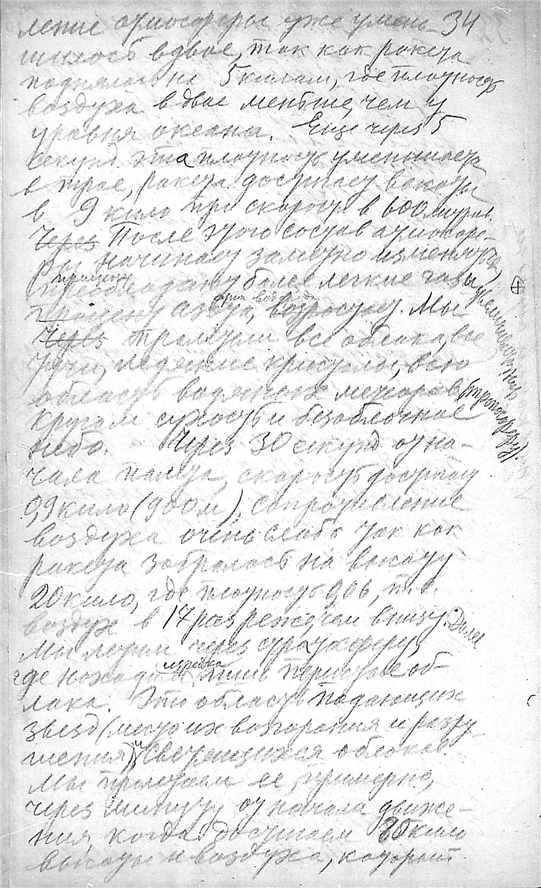 34
ление атмосферы уже умень-
шилось вдвое, так как ракета
поднялась на 5 килом, где плотность
воздуха вдвое меньше, чем у
уровня океана. Еще через 5
секунд эта плотность уменьшается
в трое, ракета достигает высоты
в 9 кило при скорости в 600 метров.
Через После этого состав атмосфе-
ры начинает заметно изменяться
более легкие газы
процент
процент азота, возрастает. Мы
Через прошли все облака, все
тучи, ледяные кристалы, всю
область водяных метеоров
(тропосферу).
Кругом сухость и безоблачное
небо. Через 30 секунд от на-
чала полета, скорость достигает
0,9 кило (900 м), сопротивление
воздуха очень слабо так как
ракета забралась на высоту
20 кило, где плотность 0,06, т.е.
воздух в 17 раз реже, чем внизу. Далее
Мы летим через стратосферу,
изредка
где находят лишь перистые об-
лака. Это область падающих
звезд (место их возгорания и разру-
шения) и светящихся облаков.
Мы пролетаем ее, примерно,
через минуту от начала движе-
ния, когда достигаем 80 кило
высоты и воздуха, который